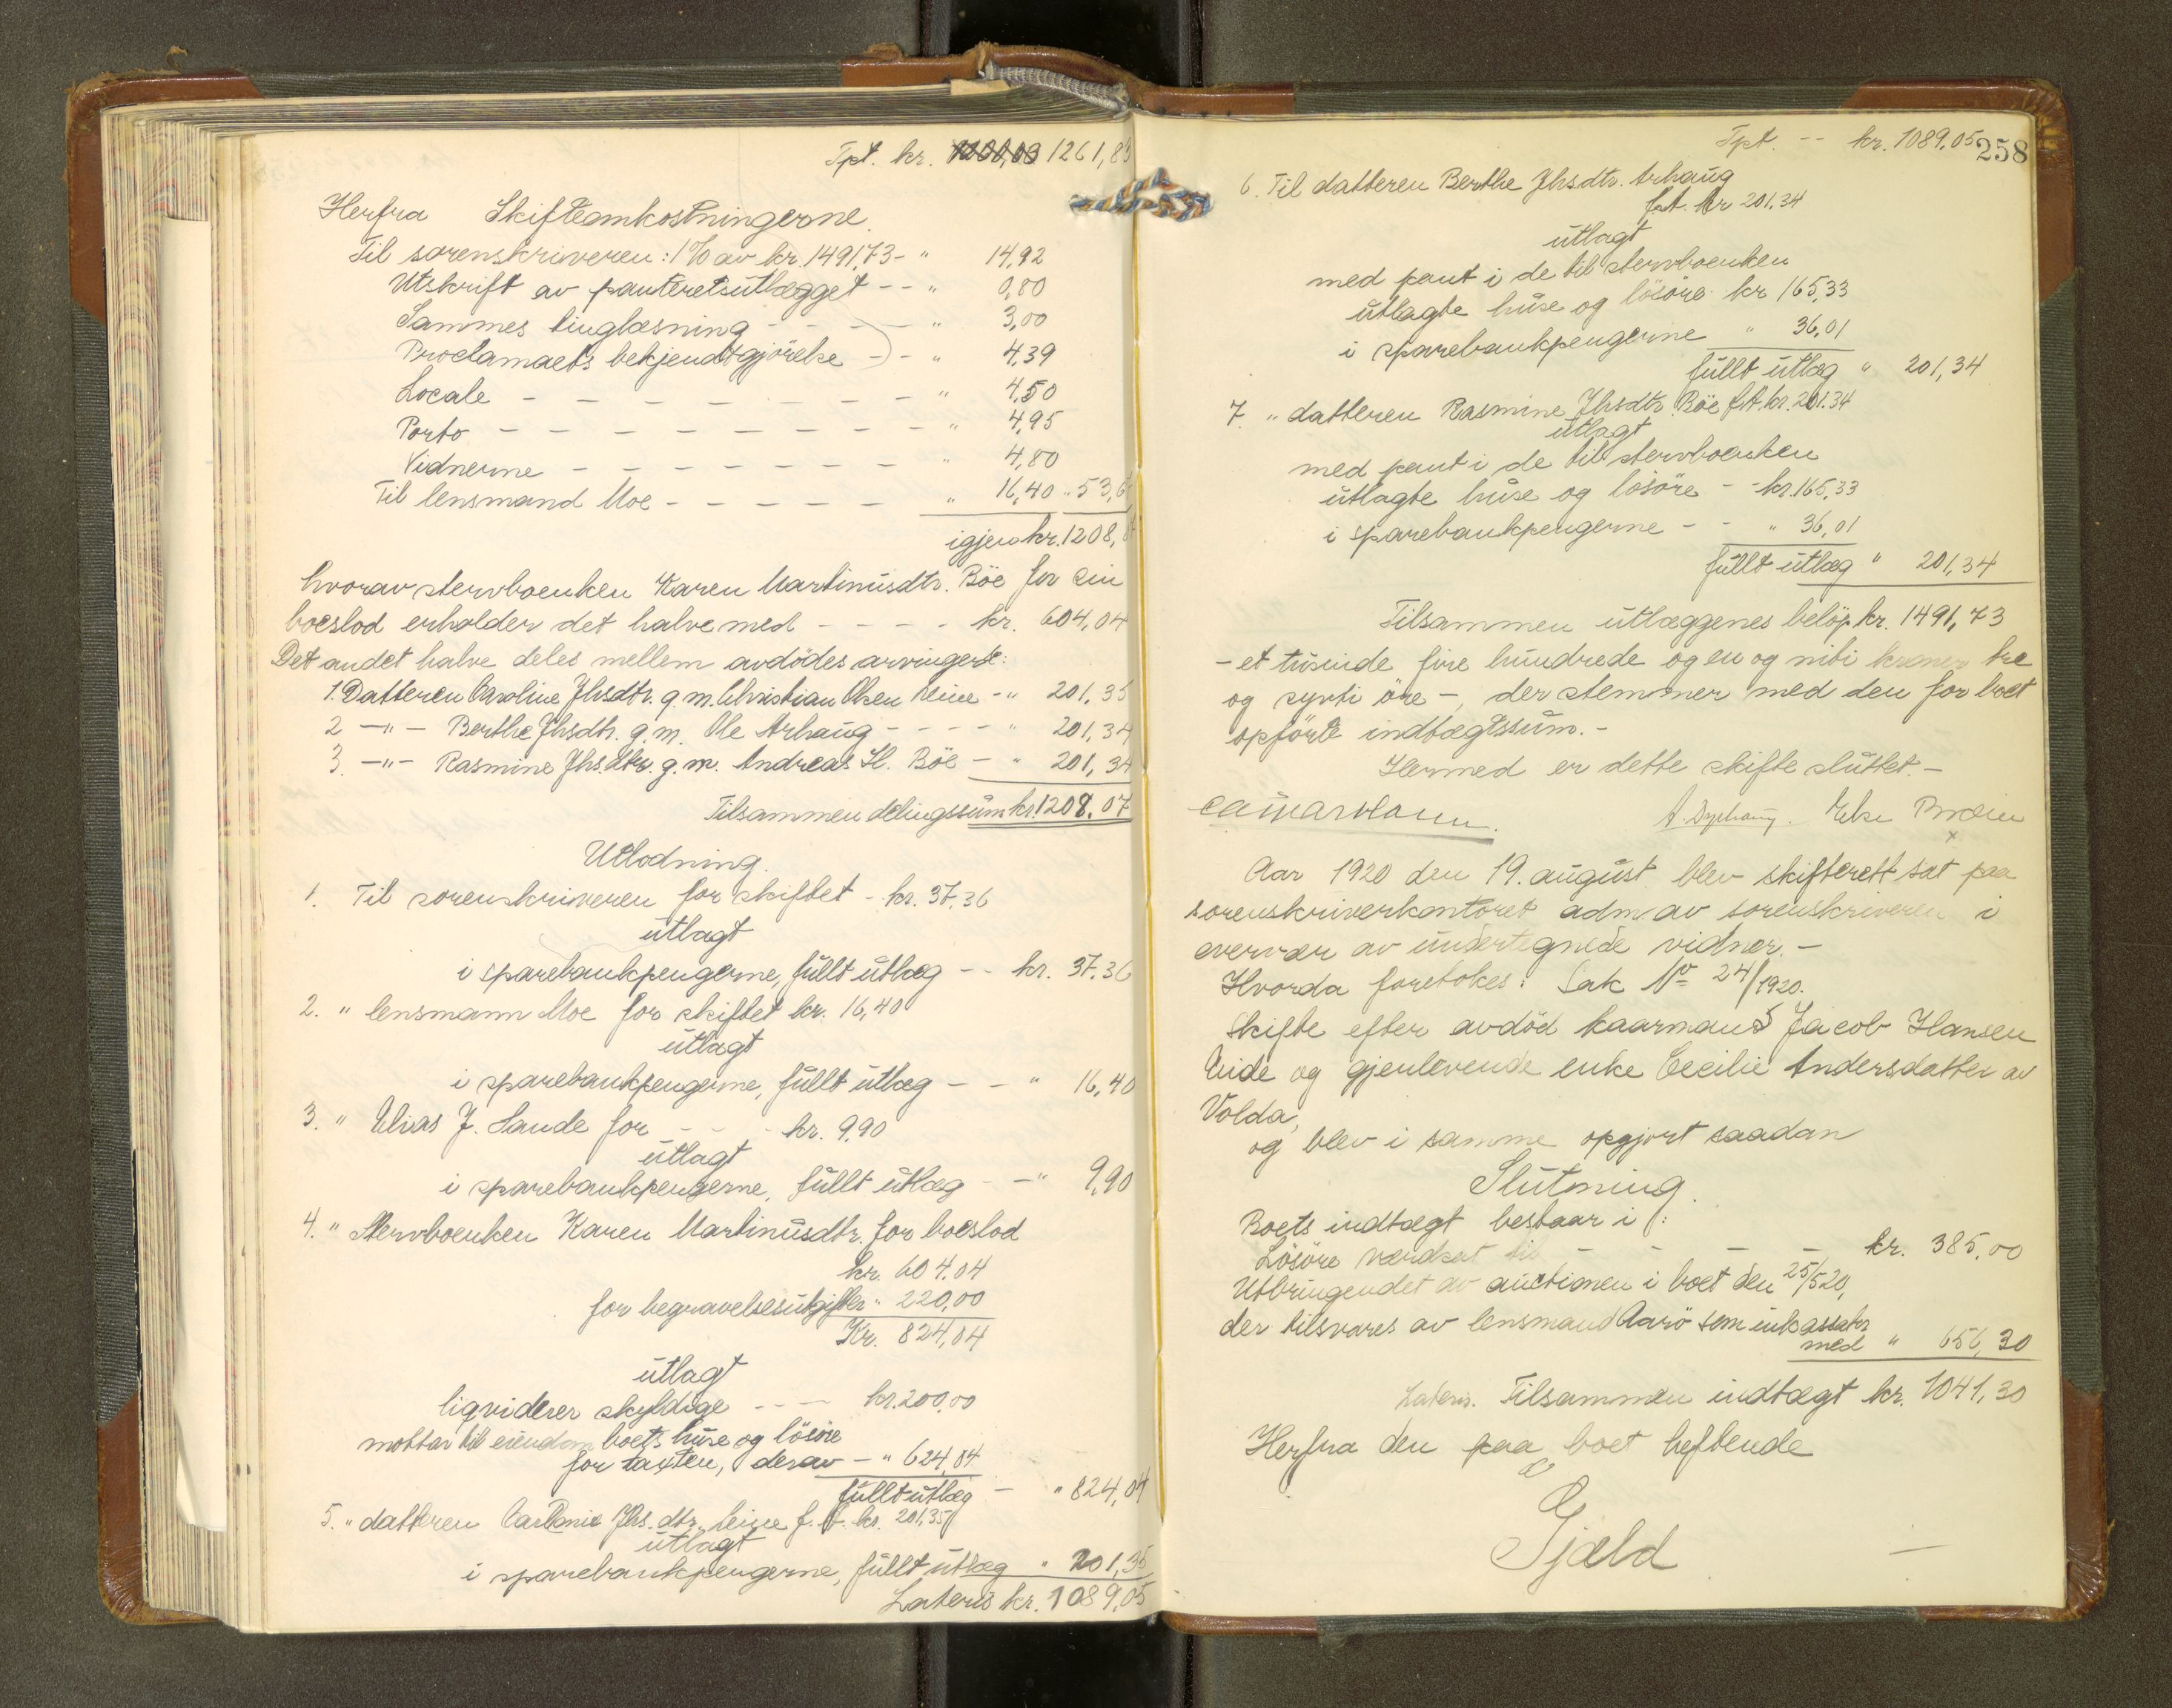 Tpt. kr. 1261,83
Herfra Skifteomkostningerne.
Til sorenskriveren: 1% av kr. 1491,73 - " 14,92
Utskrift av panteretsutlægget - - " 0,80
Sammes tinglæsning - - - - " 3,00
Proclamaets bekjendtgjörelse - - " 4,39
Locale - - - - - - - " 4,50
Porto - - - - - - - - " 4,95
Vidnerne - - - - - - - " 4,80
Til lensmand Moe - - - - - " 16,40 " 53,
igjen kr. 1208,
hvorav stervboenken Karen Martinusdtr. Böe for sin
boeslod erholder det halve med - - - - kr. 604,04
Det andet halve deles mellem avdödes arvinger:
1. Datteren Caroline Jhsdtr. g. m. Christian Olsen Leine - " 201,35
2 -"- Berthe Jhsdtr. g. m. Ole Arhaug - - - - " 201,34
3. -"- Rasmine Jhs.dtr. g. m. Andreas H. Böe - " 201,34
Tilsammen delingssum kr. 1208.07
Utlodning.
1. Til sorenskriveren for skiftet - kr. 37.36
utlagt
i sparebankpengerne, fullt utlæg - - kr. 37.36
2. " lensmann Moe for skiftet kr. 16,40
utlagt
i sparebankpengerne, fullt utlæg - - " 16,40
3. " Elias J. Sande for - - - kr. 9.90
utlagt
i sparebankpengerne, fullt utlæg - - " 9,90
4. " Stervboenken Karen Martinusdtr. for boeslod
kr. 604.04
for begravelsesutgifter " 220,00
Kr. 824,04
utlagt
liqviderer skyldige - - - kr. 200,00
mottar til eiendom boets huse og lösöre
for taxten, derav - " 624,04
fullt utlæg - " 824,04
5. " datteren Jhs.dtr. Leine f. A. kr. 201,35
utlagt
i sparebankpengerne, fullt utlæg " 201,35
Lateris kr. 1089,05
Tpt. - - kr. 1089.05
258
6. Til datteren Berthe Jhsdtr. Arhaug
f.A. kr 201.34
utlagt
med pant i de til stervboenken
utlagte huse og lösöre kr 165,33
i sparebankpengerne " 36,01
fullt utlæg " 201,34
7. " datteren Rasmine Jhsdtr. Böe f.A. kr. 201.34
utlagt
med pant i de til stervboenken
utlagte huse og lösöre - - kr. 165,33
i sparebankpengerne - - " 36,01
fullt utlæg " 201,34
Tilsammen utlæggenes belöp kr. 1491,73
- et tusinde fire hundrede og en og nitti kroner tre
og sytti öre -, der stemmer med den for boet
opförte indtægtssum. -
Hermed er dette skifte sluttet. -
Aar 1920 den 19. august blev skifterett sat paa
sorenskriverkontoret adm. av sorenskriveren i
overvær av undertegnede vidner. -
Hvorda foretokes: Sak No 24/1920.
Skifte efter avdöd kaarmand Jacob Hansen
Aude og gjenlevende enke Cecilie Andersdatter av
Volda,
og blev i samme opgjort saadan
Slutning.
Boets indtægt bestaar i:
Lösöre værdsat til - - - - kr. 385,00
Utbringendet av auctionen i boet den 25/5 20,
der tilsvares av lensmand Aarö som inkassator
med " 656,30
Lateris. Tilsammen indtægt kr. 1041,30
Herfra den paa boet heftende
Gjæld -